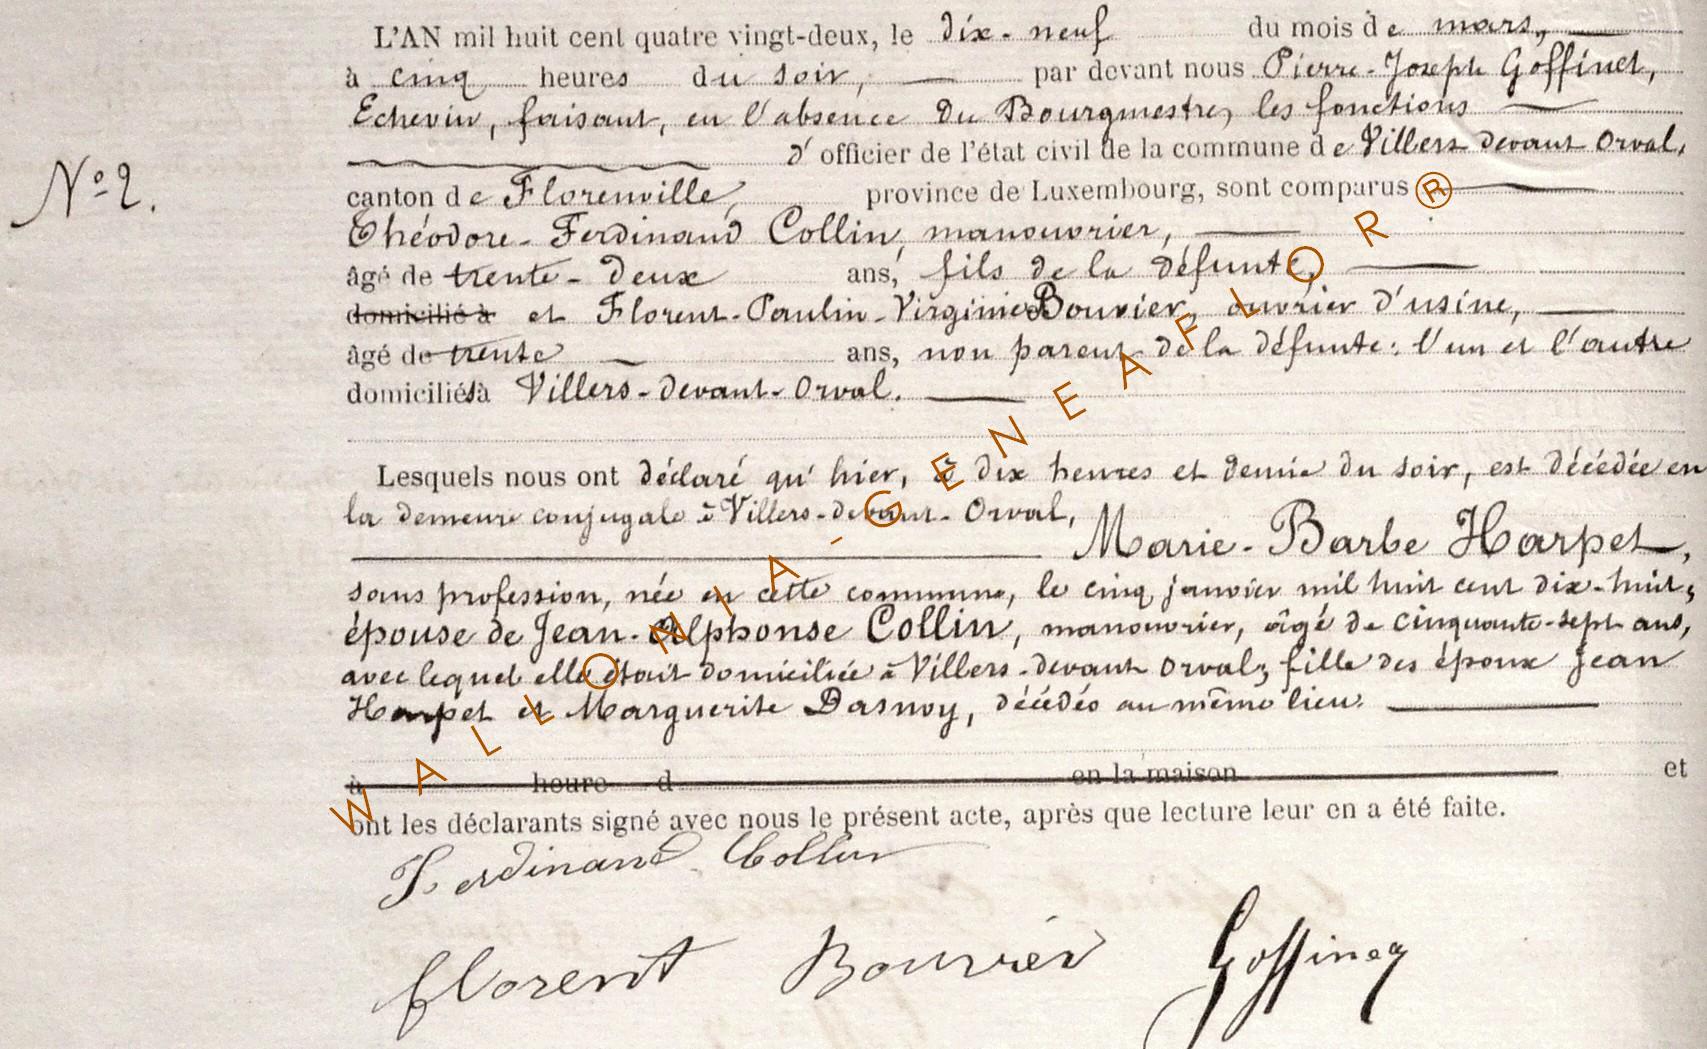 L'AN mil huit cent quatre vingt-deux, le dix-neuf du mois de mars,
à cinq heures du soir, par devant nous Pierre-Joseph Goffinet,
Echevin, faisant, en l'absence du Bourgmestre, les fonctions
d'officier de l'état civil de la commune de Villers devant Orval,
N° 2.
canton de Florenville, province de Luxembourg, sont comparus
Théodore-Ferdinand Collin, manouvrier,
âgé de trente-deux ans, fils de la défunte,
domicilié à et Florent-Paulin-Virginie Bouvier, ouvrier d'usine,
âgé de trente ans, non parent de la défunte: l'un et l'autre
domiciliés à Villers-devant-Orval.
Lesquels nous ont déclaré qu'hier, à dix heures et demie du soir, est décédée en
la demeure conjugale à Villers-devant-Orval,
Marie-Barbe Harpet,
sans profession, née en cette commune, le cinq janvier mil huit cent dix-huit,
épouse de Jean-Alphonse Collin, manouvrier, âgé de cinquante-sept ans,
avec lequel elle était domiciliée à Villers-devant Orval; fille des époux Jean
Harpet et Marguerite Dasnoy, décédés au même lieu.
à heure d en la maison et
ont les déclarants signé avec nous le présent acte, après que lecture leur en a été faite.
Ferdinand Collin
Florent Bouvier Goffinet
WALLONIA-GENEAFLOR®